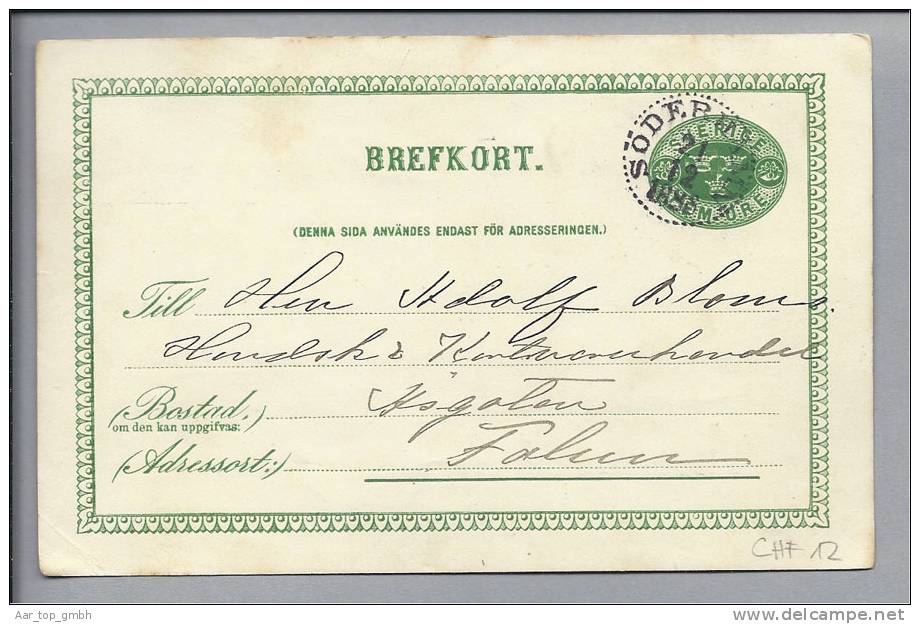 SVERIGE
FEM ÖRE
SÖDERH
21
12
BREFKORT.
(DENNA SIDA ANVÄNDES ENDAST FÖR ADRESSERINGEN.)
Till Herr Adolf Bloms
Handsk & Kortvaruhandel
(Bostad,) Åsgatan
om den kan uppgifvas:
(Adressort:) Falun
CHF 12
Aar_top_gmbh
delcampe.net